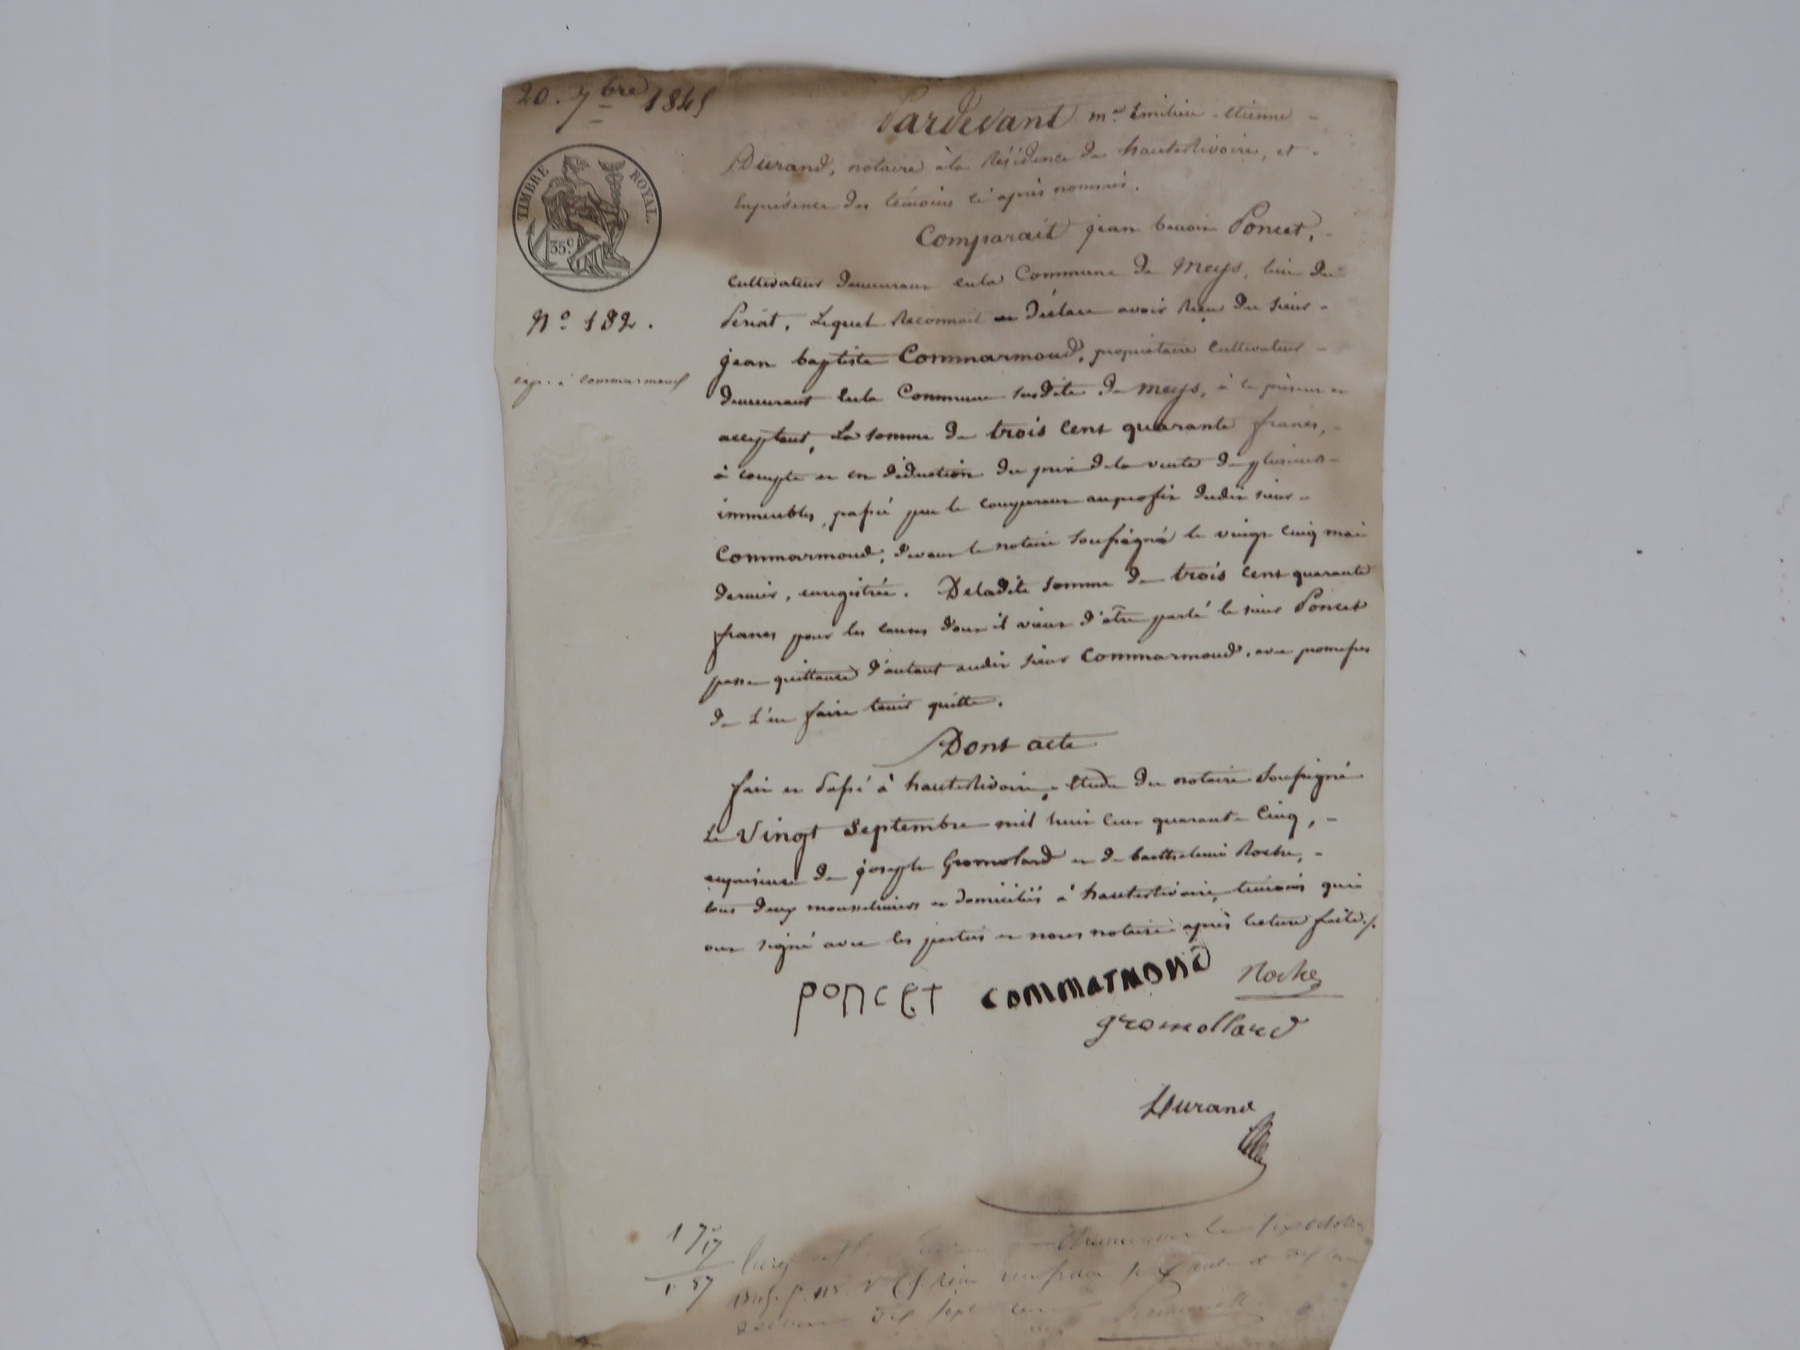 20. 7bre 1845
TIMBRE ROYAL.
35c
No 182.
exp. à Commarmond
Pardevant me Emilien Etienne
Durand, notaire à la Résidence de hauterivoire, et
Enprésence des témoins ci après nommés.
Comparait jean Poncet,
cultivateur demeurant enla Commune de Meys, lieu du
Lequel Reconnait et Déclare avoir Reçu du sieur
jean baptiste Commarmond, propriétaire cultivateur
demeurant enla Commune susdite de meys, à ce présent et
acceptant, La somme de trois cent quarante francs,
à compte et en déduction du prix dela vente de plusieurs
immeubles, passée par le comparant auprofit dudit sieur
Commarmond, devant le notaire soussigné le vingt cinq mai
dernier, enregistrée. Deladite somme de trois cent quarante
francs pour les causes dont il vient d'être parlé le sieur Poncet
passe quittance d'autant audit sieur Commarmond, avec promesse
de L'en faire tenir quitte.
Dont acte
fait et Passé à hauterivoire, Etude du notaire Soussigné
Le Vingt Septembre mil huit cent quarante Cinq,
enprésence de joseph Gromolard et de barthelemi Roche,
tous deux mousseliniers et domiciliés à hauterivoire, témoins qui
ont signé avec les parties et nous notaire après lecture faite./.
PONCET COMMARMOND Roche
gromollard
Durand
1 7
17
1.87